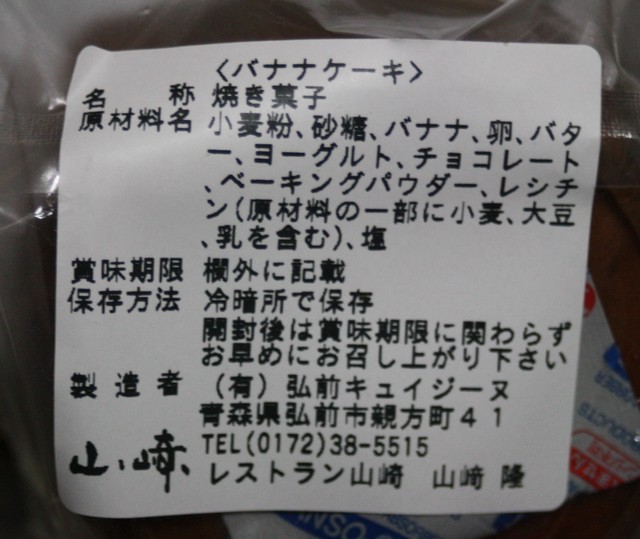 〈バナナケーキ〉
名　　称 焼き菓子
原材料名 小麦粉、砂糖、バナナ、卵、バタ
ー、ヨーグルト、チョコレート
、ベーキングパウダー、レシチ
ン(原材料の一部に小麦、大豆
、乳を含む)、塩
賞味期限 欄外に記載
保存方法 冷暗所で保存
開封後は賞味期限に関わらず
お早めにお召し上がり下さい
製 造 者 （有）弘前キュイジーヌ
青森県弘前市親方町４１
TEL(0172)38-5515
山﨑 レストラン山﨑　山﨑 隆
PRODUCTS